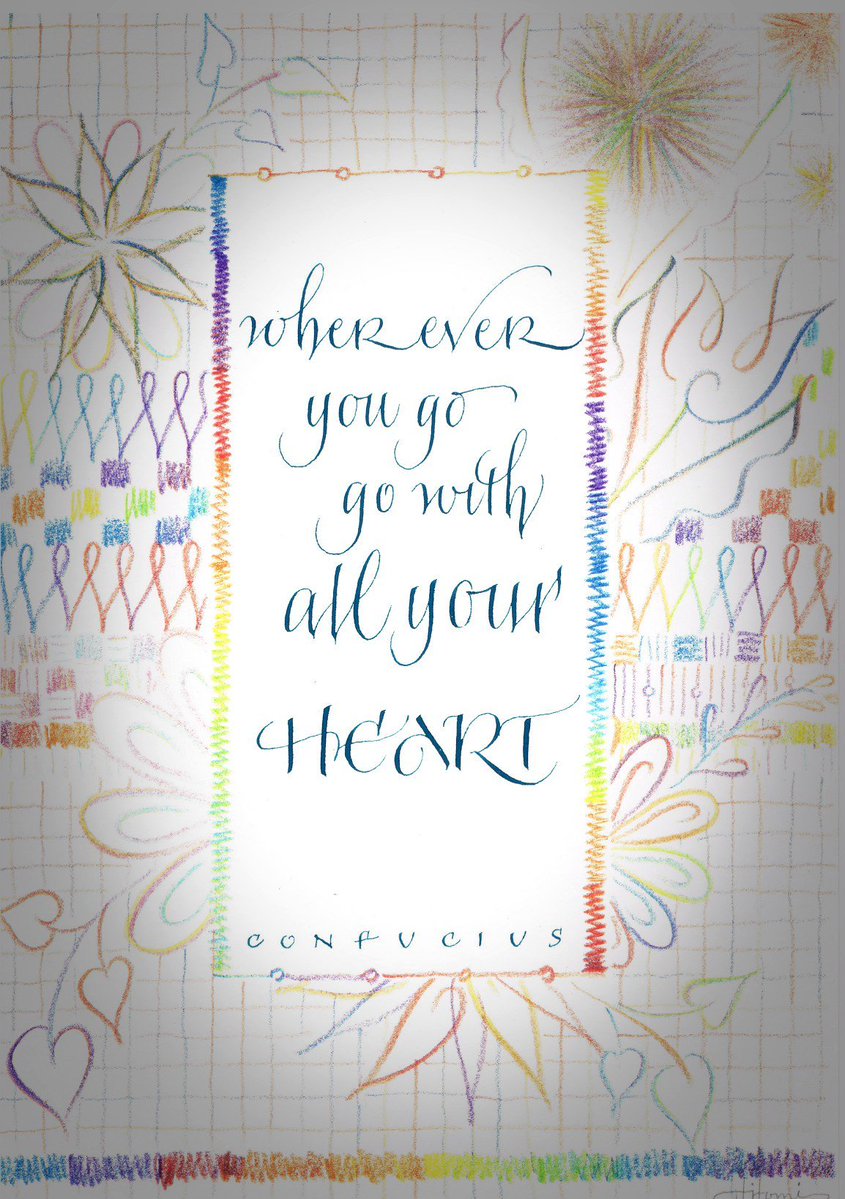 wherever
you go
go with
all your
HEART
CONFUCIUS